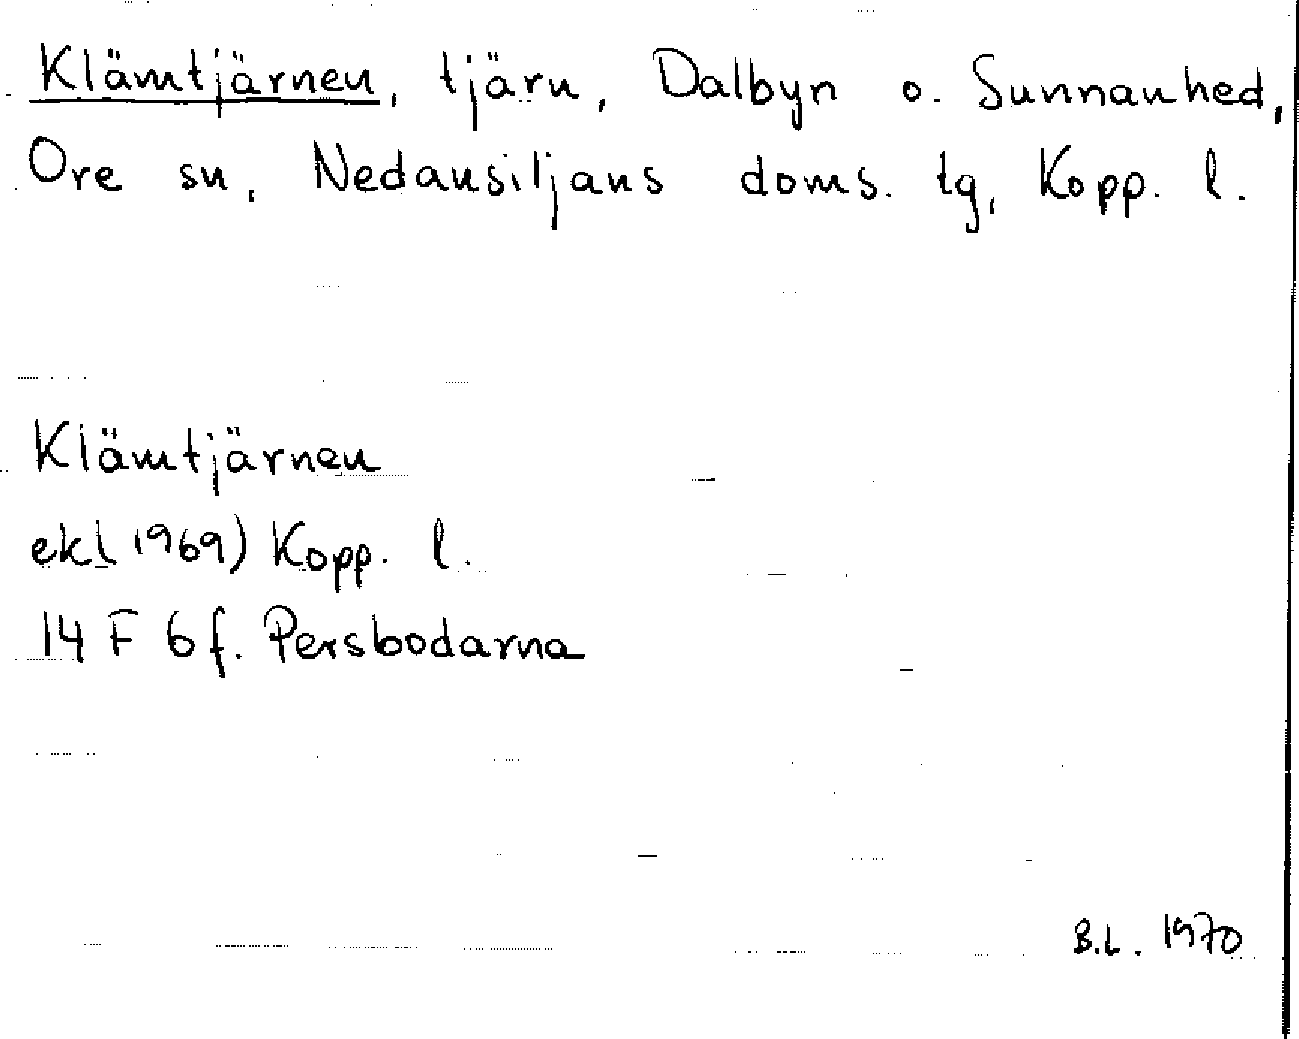 Klämtjärnen, tjärn, Dalbyn o. Sunnanhed,
Ore sn, Nedansiljans doms. tg, Kopp. l.
Klämtjärnen
ek(1969) Kopp. l.
14 F 6 f. Persbodarna
B.L. 1970